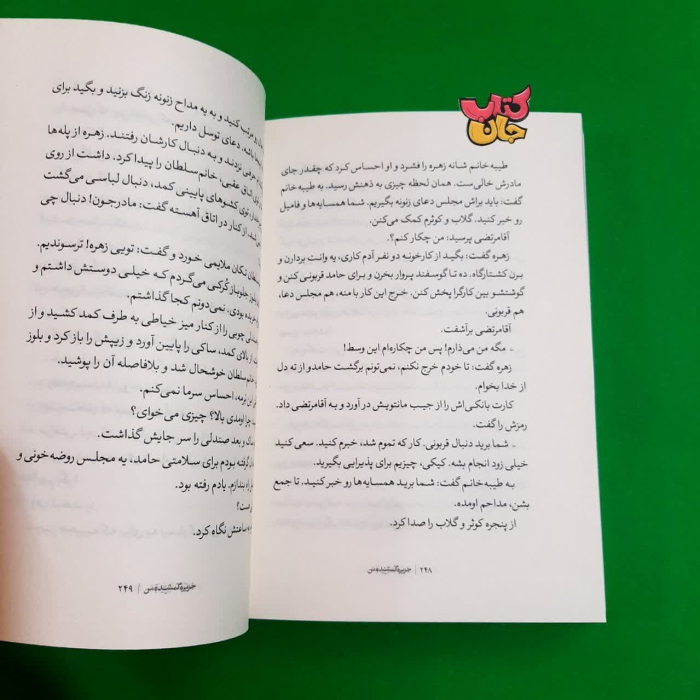 کتاب
جان
طیبه خانم شانه زهره را فشرد و او احساس کرد که چقدر جای
مادرش خالی‌ست. همان لحظه چیزی به ذهنش رسید. به طیبه خانم
گفت: باید براش مجلس دعای زنونه بگیریم. شما همسایه‌ها و فامیل
رو خبر کنید. گلاب و کوثرم کمک می‌کنن.
آقامرتضی پرسید: من چکار کنم؟
زهره گفت: بگید از کارخونه دو نفر آدم کاری، یه وانت بردارن و
برن کشتارگاه. ده تا گوسفند پروار بخرن و برای حامد قربونی کنن و
گوشتشو بین کارگرا پخش کنن. خرج این کار با منه، هم مجلس دعا،
هم قربونی.
آقامرتضی برآشفت.
ـ مگه من می‌ذارم! پس من چکاره‌ام این وسط!
زهره گفت: تا خودم خرج نکنم، نمی‌تونم برگشت حامدو از ته دل
از خدا بخوام.
کارت بانکی‌اش را از جیب مانتویش در آورد و به آقامرتضی داد.
رمزش را گفت.
ـ شما برید دنبال قربونی. کار که تموم شد، خبرم کنید. سعی کنید
خیلی زود انجام بشه. کیکی، چیزیم برای پذیرایی بگیرید.
به طیبه خانم گفت: شما برید همسایه‌ها رو خبر کنید. تا جمع
بشن، مداحم اومده.
از پنجره کوثر و گلاب را صدا کرد.
۲۴۸ | جزیره گمشده من
مرتب کنید و به یه مداح زنونه زنگ بزنید و بگید برای
باشه. دعای توسل داریم.
حرفی نزدند و به دنبال کارشان رفتند. زهره از پله‌ها
اتاق عقبی، خانم سلطان را پیدا کرد. داشت از روی
توی کشوهای پایینی کمد، دنبال لباسی می‌گشت
از کنار در اتاق آهسته گفت: مادرجون! دنبال چی
تکان ملایمی خورد و گفت: تویی زهره! ترسوندیم.
جلوباز کُرکی می‌گردم که خیلی دوستش داشتم و
خریده بودی. نمی‌دونم کجا گذاشتم.
چوبی را از کنار میز خیاطی به طرف کمد کشید و از
بالای کمد، ساکی را پایین آورد و زیپش را باز کرد و بلوز
خانم سلطان خوشحال شد و بلافاصله آن را پوشید.
نرمه، احساس سرما نمی‌کنم.
چرا اومدی بالا؟ چیزی می‌خوای؟
و بعد صندلی را سر جایش گذاشت.
گرفته بودم برای سلامتی حامد، یه مجلس روضه‌خونی و
راه بندازم. یادم رفته بود.
است؟
به ساعتش نگاه کرد.
جزیره گمشده من | ۲۴۹